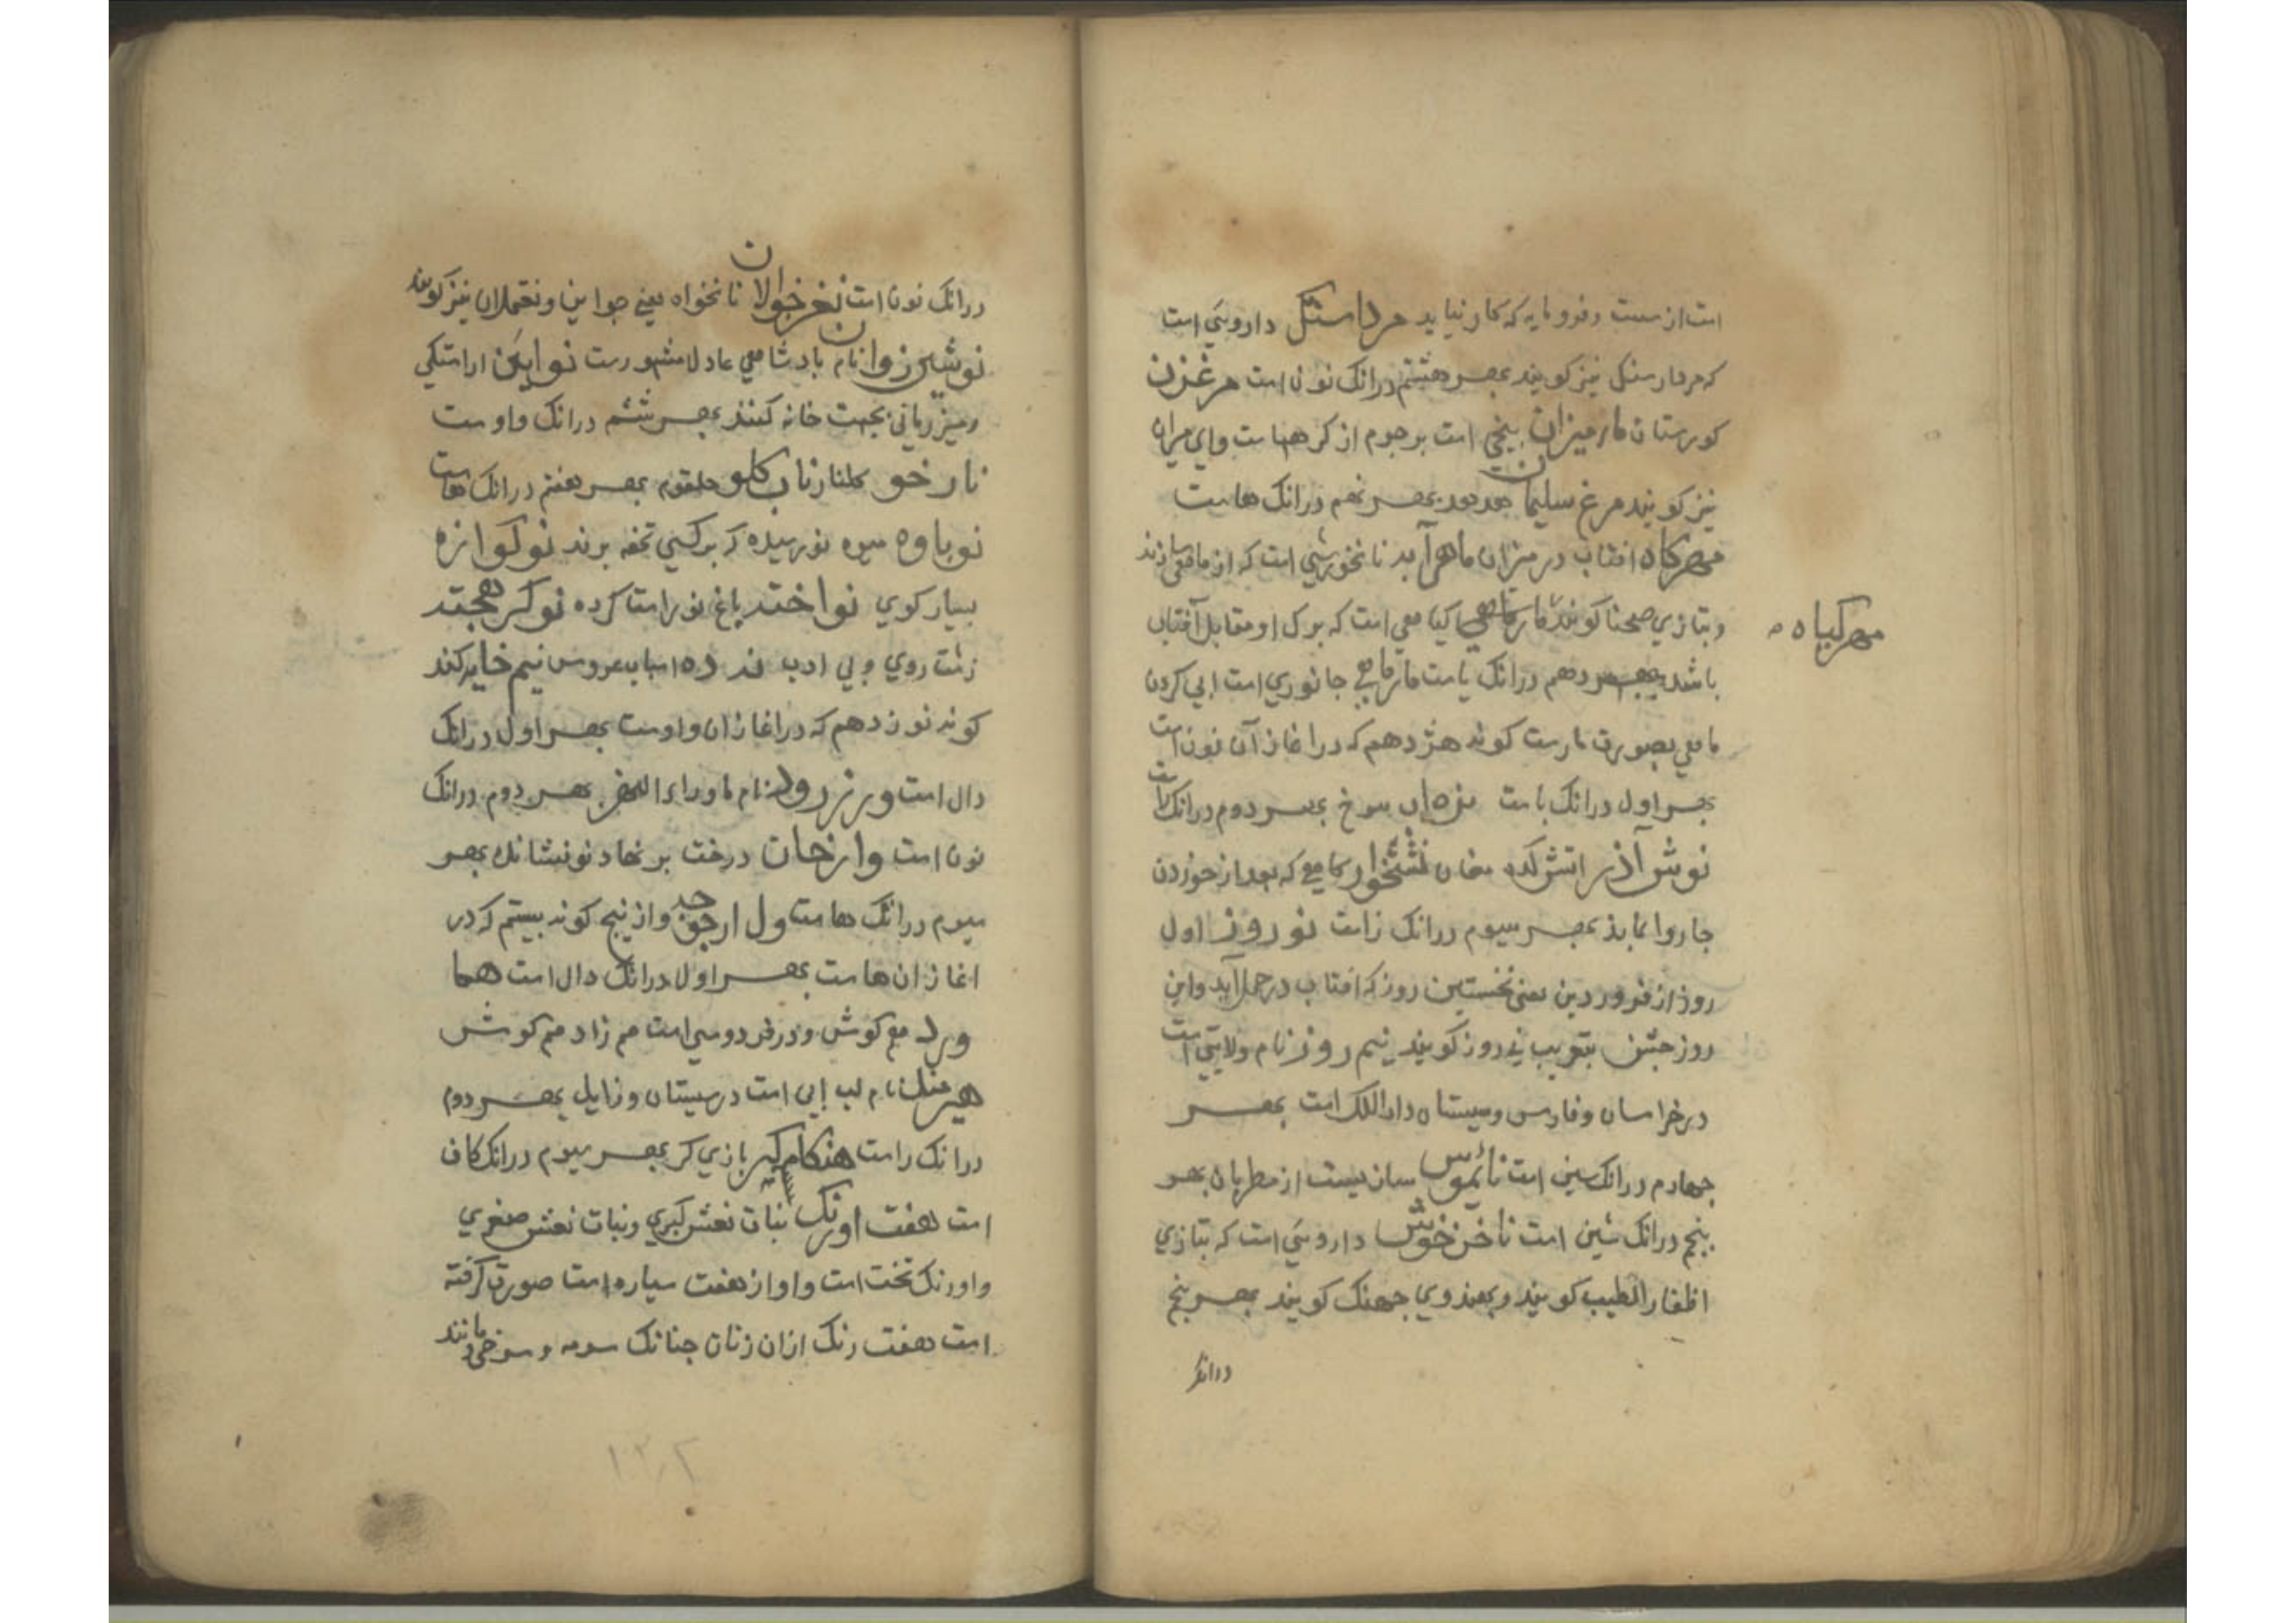 است از سست و فرومایه که کار نیاید مرداسنک داروئی است
که مردار سنک نیز کویند بهر هشتم درانک نون است مرغزن
کورستان مارمیزان بیخی است بر جرم از کرهها ست وای میران
نیز کویند مرغ سلیمان هدهد بهر نهم درانک هاست
مهرکاه افتاب در میزان ماه آبه نانخورشی است که از ماهی سازند
و بتازی صحنا کویند کیاهی است که برک او مقابل آفتاب
مهرکیاه
باشد بهر دهم درانک یاست مارماهی جانوری است ابی کردن
ماهی بصورت مارست کونه هژدهم که در اغاز آن نون است
بهر اول درانک باست سرخ بهر دوم درانک راست
نوش آذر اتش کده مغان نشخوار کاهی که بعد از خوردن
جاروا بماند بهر سیوم درانک زاست نوروز اول
روز از فروردین یعنی نخستین روز که افتاب در حمل آید و این
روز جشن بتعریب نی روز کویند نیم روز نام ولایتی است
در خراسان و فارس و سیستان دار الملک است بهر
چهارم درانک سین است سان بیست از مطربان بهر
پنجم درانک شین است ناخن خوش داروئی است که بتازی
اظفار الطیب کویند و بهندوی جهنک کویند بهر پنج
درانک
درانک نون است نغرخوالان نانخواه یعنی جواین و نغملان نیز کویند
نوشین زوان نام بادشاهی عادل مشهورست نوایین اراستکی
و میزبانی بجهت خانه کنند بهر ششم درانک واوست
نارخو کلنار ناب کلو حلقوم بهر هفتم درانک هاست
نوباوه میوه نورسیده که بر کسی تحفه برند نوکوازه
بسیار کوی نواخته باغ نو راست کرده
زشت روی و بی ادب اسباب عروس نیم خایه کند
کونه نوزدهم که در اغاز ان واوست بهر اول درانک
دال است ورزرود نام ماوراء النهر بهر دوم درانک
نون است وارخان درخت بر نهاد نو نشانک بهر
سیوم درانک هاست کونه بیستم که در
اغاز ان هاست بهر اول درانک دال است هما
ورد هم کوش و در فردوسی است هم زاد هم کوش
هیرمند نام لب ابی است در سیستان و زابل بهر دوم
درانک راست هنکامه کیر بازی کر بهر سیوم درانک کاف
است هفت اورنک بنات نعش کبری و بنات نعش صغری
و اورنک تخت است و او از هفت سیاره است صورت کرفته
است هفت رنک ازان زنان چنانک سرمه و سرخی و مانند
۱۳۲